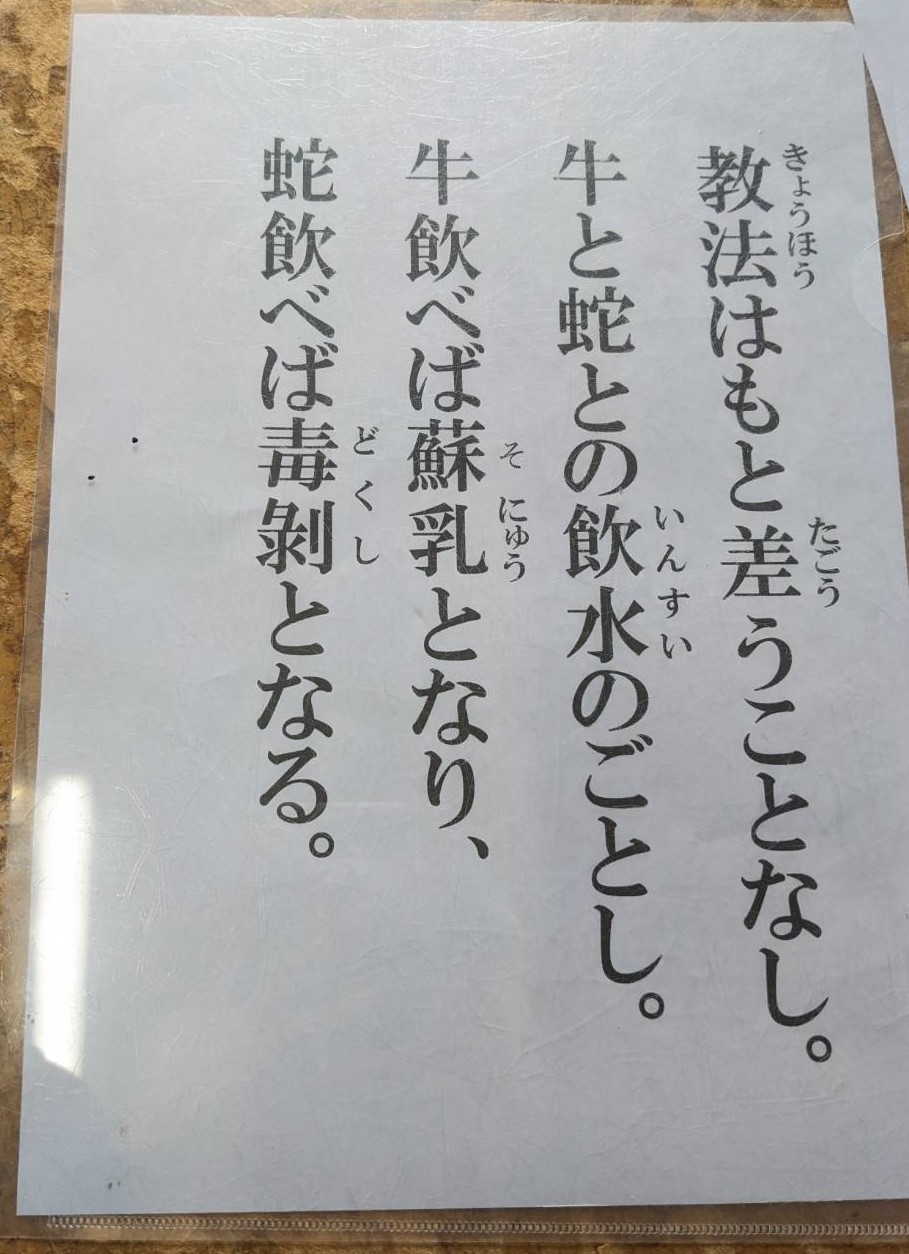 教法はもと差うことなし。
きょうほう
たごう
牛と蛇との飲水のごとし。
いんすい
牛飲べば蘇乳となり、
そにゅう
蛇飲べば毒剝となる。
どくし